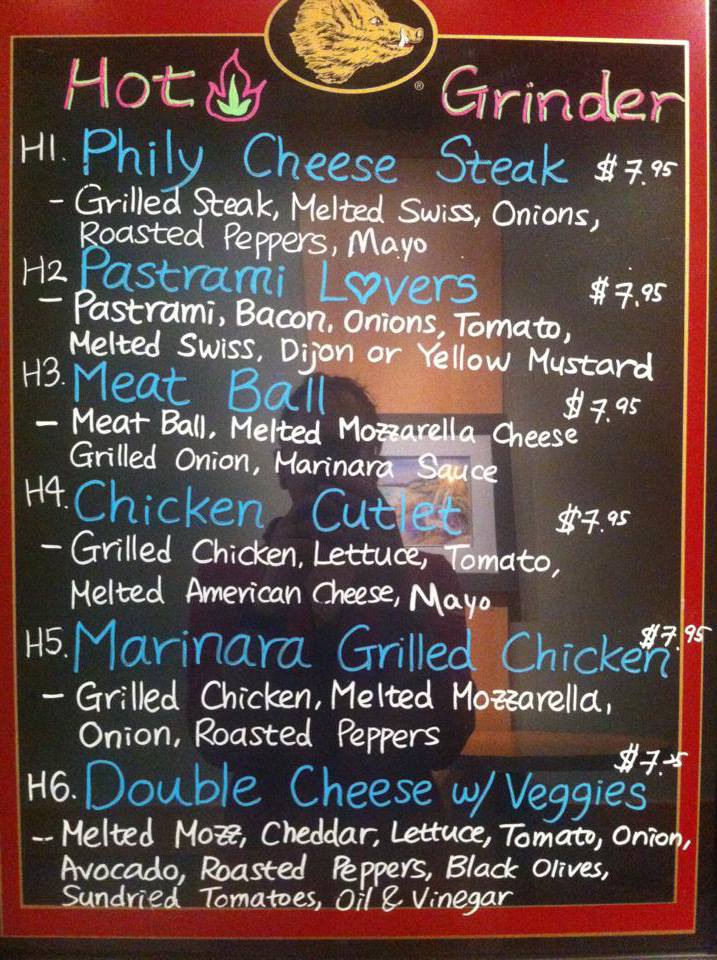 Hot Grinder
H1. Phily Cheese Steak $7.95
- Grilled Steak, Melted Swiss, Onions,
Roasted Peppers, Mayo
H2 Pastrami Lovers $7.95
- Pastrami, Bacon, Onions, Tomato,
Melted Swiss, Dijon or Yellow Mustard
H3. Meat Ball $7.95
- Meat Ball, Melted Mozzarella Cheese
Grilled Onion, Marinara Sauce
H4. Chicken Cutlet $7.95
- Grilled Chicken, Lettuce, Tomato,
Melted American Cheese, Mayo
H5. Marinara Grilled Chicken $7.95
- Grilled Chicken, Melted Mozzarella,
Onion, Roasted Peppers
H6. Double Cheese w/ Veggies $7.25
-- Melted Mozz, Cheddar, Lettuce, Tomato, Onion,
Avocado, Roasted Peppers, Black Olives,
Sundried Tomatoes, Oil & Vinegar